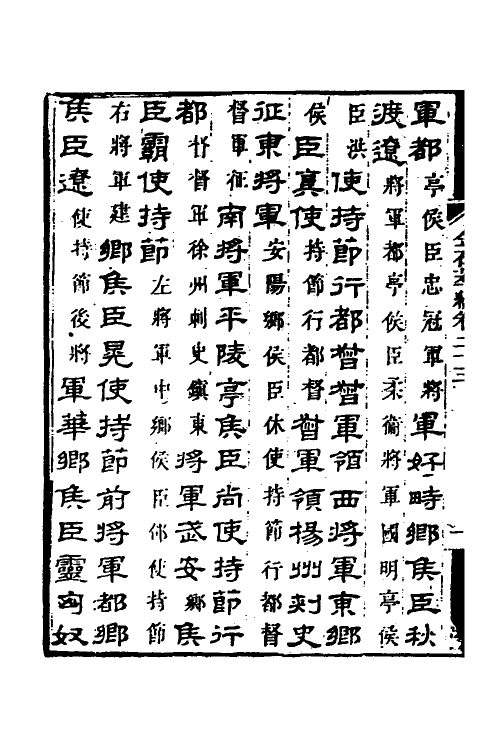 金石萃編卷二十三
一
軍都亭侯臣忠冠軍將軍好畤鄉侯臣秋
渡遼將軍都亭侯臣柔衞將軍國明亭侯
臣洪使持節行都督督軍領西將軍東鄉
侯臣真使持節行都督督軍領楊州刺史
征東將軍安陽鄉侯臣休使持節行都督
督軍征南將軍平陵亭侯臣尚使持節行
都督督軍徐州刺史鎮東將軍武安鄉侯
臣霸使持節左將軍中鄉侯臣郃使持節
右將軍建鄉侯臣晃使持節前將軍都鄉
侯臣遼使持節後將軍華鄉侯臣靈匈奴